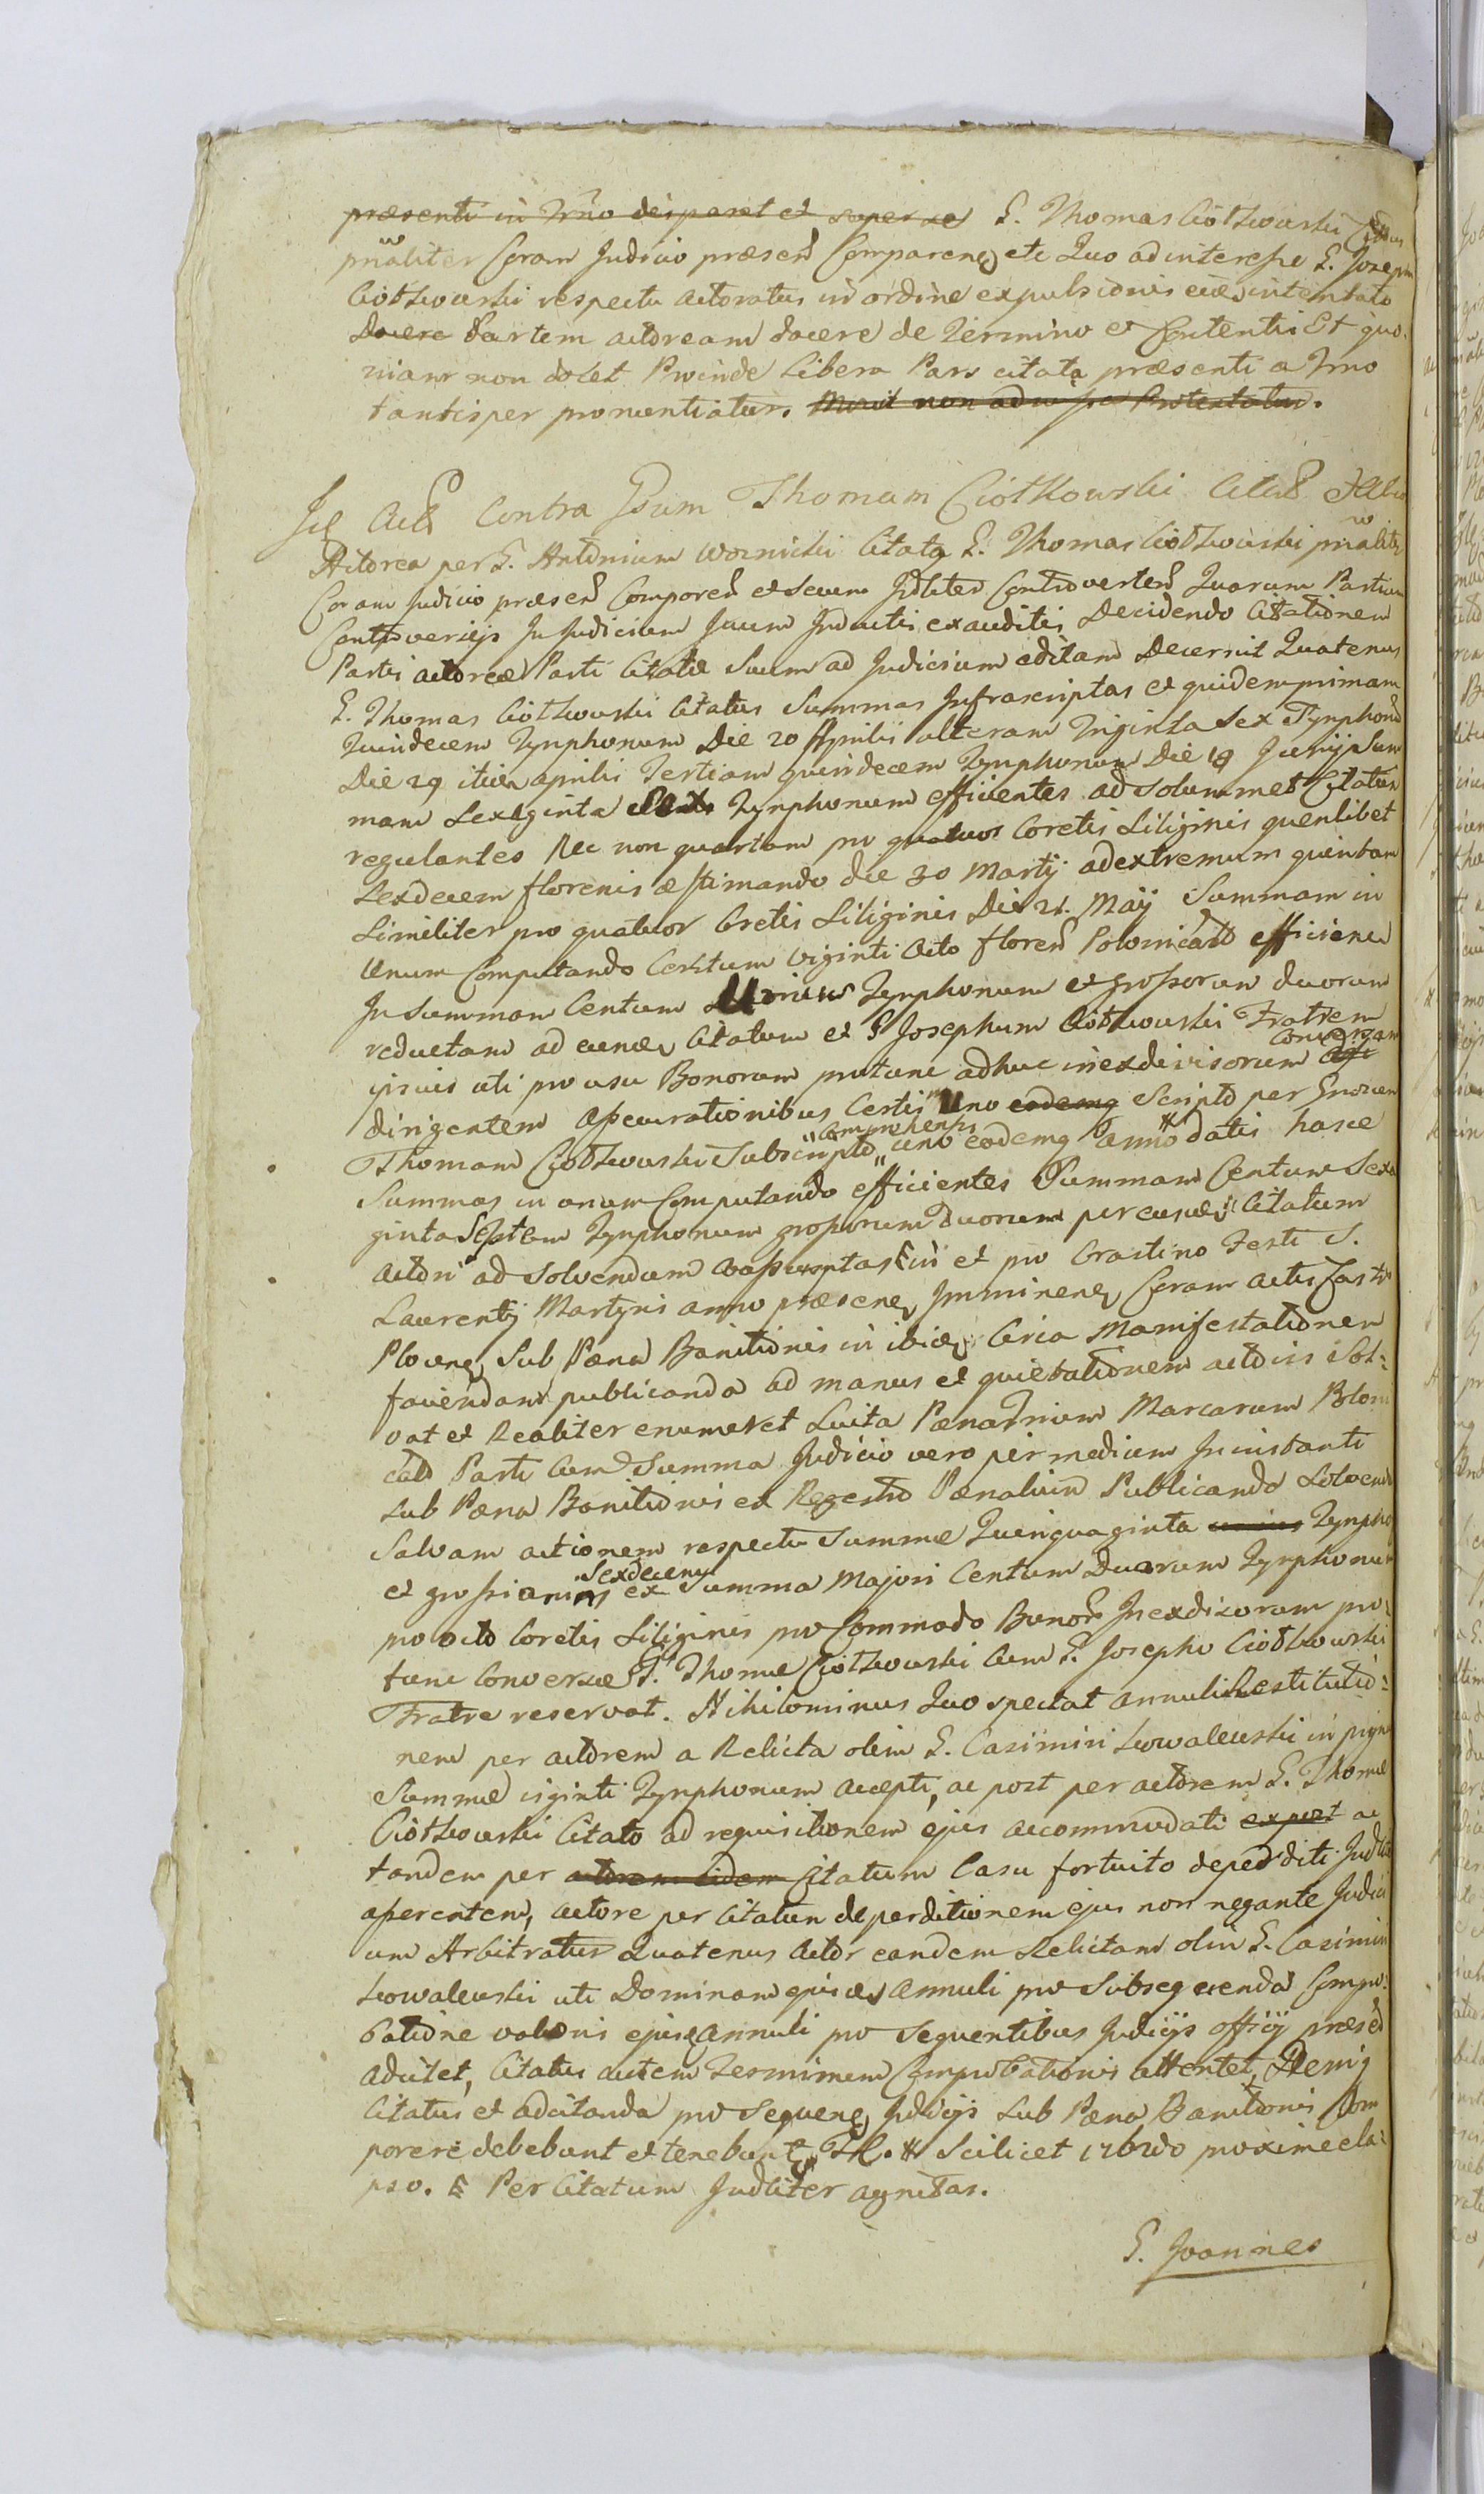 præsenti in Trno desparet et super se G. Thomas Ciółkowski Citatus
pnaliter Coram Judicio præsen Comparens etc Quo ad interesse G. Joseph
Ciółkowski respectu actoratus in ordine expulsionis ejus intentato
Docere Partem actoream docere de Termino et Contentis Et quo-
niam non docet Proinde libera Pars citata præsenti a Trno
tantisper pronuntiatur. non Protestatur.
Contra Thomam Ciółkowski
Actorea per G. Antonium Woznicki Citatq G. Thomas Ciółkowski pnaliter
Coram Judicio præsen Comparen et secum Jdliter Controverten Quarum Partium
Controversijs In Judicium suum Inductis exauditis Decidendo Citationem
Partis actoreæ Parti Citatæ suum ad Judicium editam Decernit Quatenus
G. Thomas Ciółkowski Citatus Summas Infrascriptas et quidem primam
Quindecem Tynphonum Die 20 Aprilis alteram Triginta Sex Tynphonu
Die 29 itidem aprilis Tertiam quindecem Tynphonum Die 19 Junij Sum
mam Sexaginta Sex Tynphonum efficientes ad solummet Citatum
regulantes Nec non quartam pro quatuor Coretis Siliginis quenlibet
Sexdecem florenis æstimando die 30 Martij ad extremum quintam
Similiter pro quatuor Coretis Siliginis Die 21. Maij Summam in
Unum Computando Centum viginti Octo floren Polonicales efficien
In summam Centum Unius Tynphonum et grossorum duorum
reductam ad eundem Citatum et G Josephum Ciółkowski Fratrem
ipsius uti pro usu Bonorum protunc adhuc inexdivisorum Conversam
dirigentem Assecurationibus Certis Uno eodemq Scripto per Gnosum
Thomam Ciółkowski Subscripto comprehensis uno eodemq anno datis hasce
Summas in unum Computando efficientes Summam Centum Sexa
ginta Septem Tynphonum grossorum Duorum per eundem Citatum
actori ad solvendum assumptas in et pro Crastino Festi S.
Laurentij Martyris anno præsenq Imminenq Coram actis Castr
Plocenq Sub Pœna Banitionis in ibidem Circa Manifestationem
faciendam publicanda ad manus et quietationem actoris Sol-
vat et Realiter enumeret Luita Pœna Trium Marcarum Polon
cales Parti Cum Summa Judicio vero per medium In instanti
sub Pœna Banitionis ex Regestro Pœnalium Publicanda Solvenda
Salvam actionem respectu Summæ Quinquaginta unius Tynpho
et grossi Sexdecem ex Summa Majori Centum Duorum Tynphonum
pro octo Coretis Siliginis pro Commodo Bonor Inexdivisorum pro-
tunc Conversæ G. Thomæ Ciółkowski Cum G. Josepho Ciółkowski
Fratre reservat. Nihilominus Quo spectat annuli Restitutio-
nem per actorem a Relicta olim G. Casimiri Kowalewski in pign
Summæ viginti Tynphonum accepti, ac post per actorem G. Thomæ
Ciółkowski Citato ad requisitionem ejus accommodati expost ac
tandem per actorem eidem Citatum Casu fortuito deperditi Judlit
asserentem, actore per Citatum deperditionem ejus non negante Judici
um Arbitratur Quatenus actor eandem Relictam olim G. Casimiri
Kowalewski uti Dominam ejusdem annuli pro Subsequenda Compro-
batione valoris ejusq annuli pro Sequentibus Judicijs officij præsen
adcitet, Citatus autem Terminum Comprobationis attentet, Deniq
Citatus et adcitanda pro Sequenq Judicijs sub Pœna Banitionis Com
parere debebunt et tenebunt # Scilicet proxime ela-
pso. Per Citatum Judliter agnitas.
G. Joannes